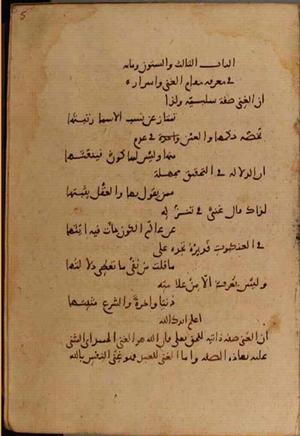 الباب الثالث والستون ومائه
في معرفه مقام الغنى واسراره
ان الغنى صفة سلبيه ولذا
تمتاز عن نسب الاسما رتبتها
تخصه حكمها والعين واحدة في عزه
منها وليس لها كون فينعتها
ان الدلالة في التحقيق مجهلة
ممن يقول بها والعقل يثبتها
لذاك قال غنى في تنزله
عن عالم الكون جات فيه ايتها
في العنكبوت فدبره تجده على
ما قلت من نفى ما تعطى دلالتها
وليس يعرفه الا من علامته
دنيا واخرة والشرع مثبتها
اعلم ايدك الله
ان الغنى صفه ذاتيه للحق تعالى فان الله هو الغنى الحميد اى المثنى
عليه بهذه الصفه واما الغنى للعبد فهو غنى النفس بالله